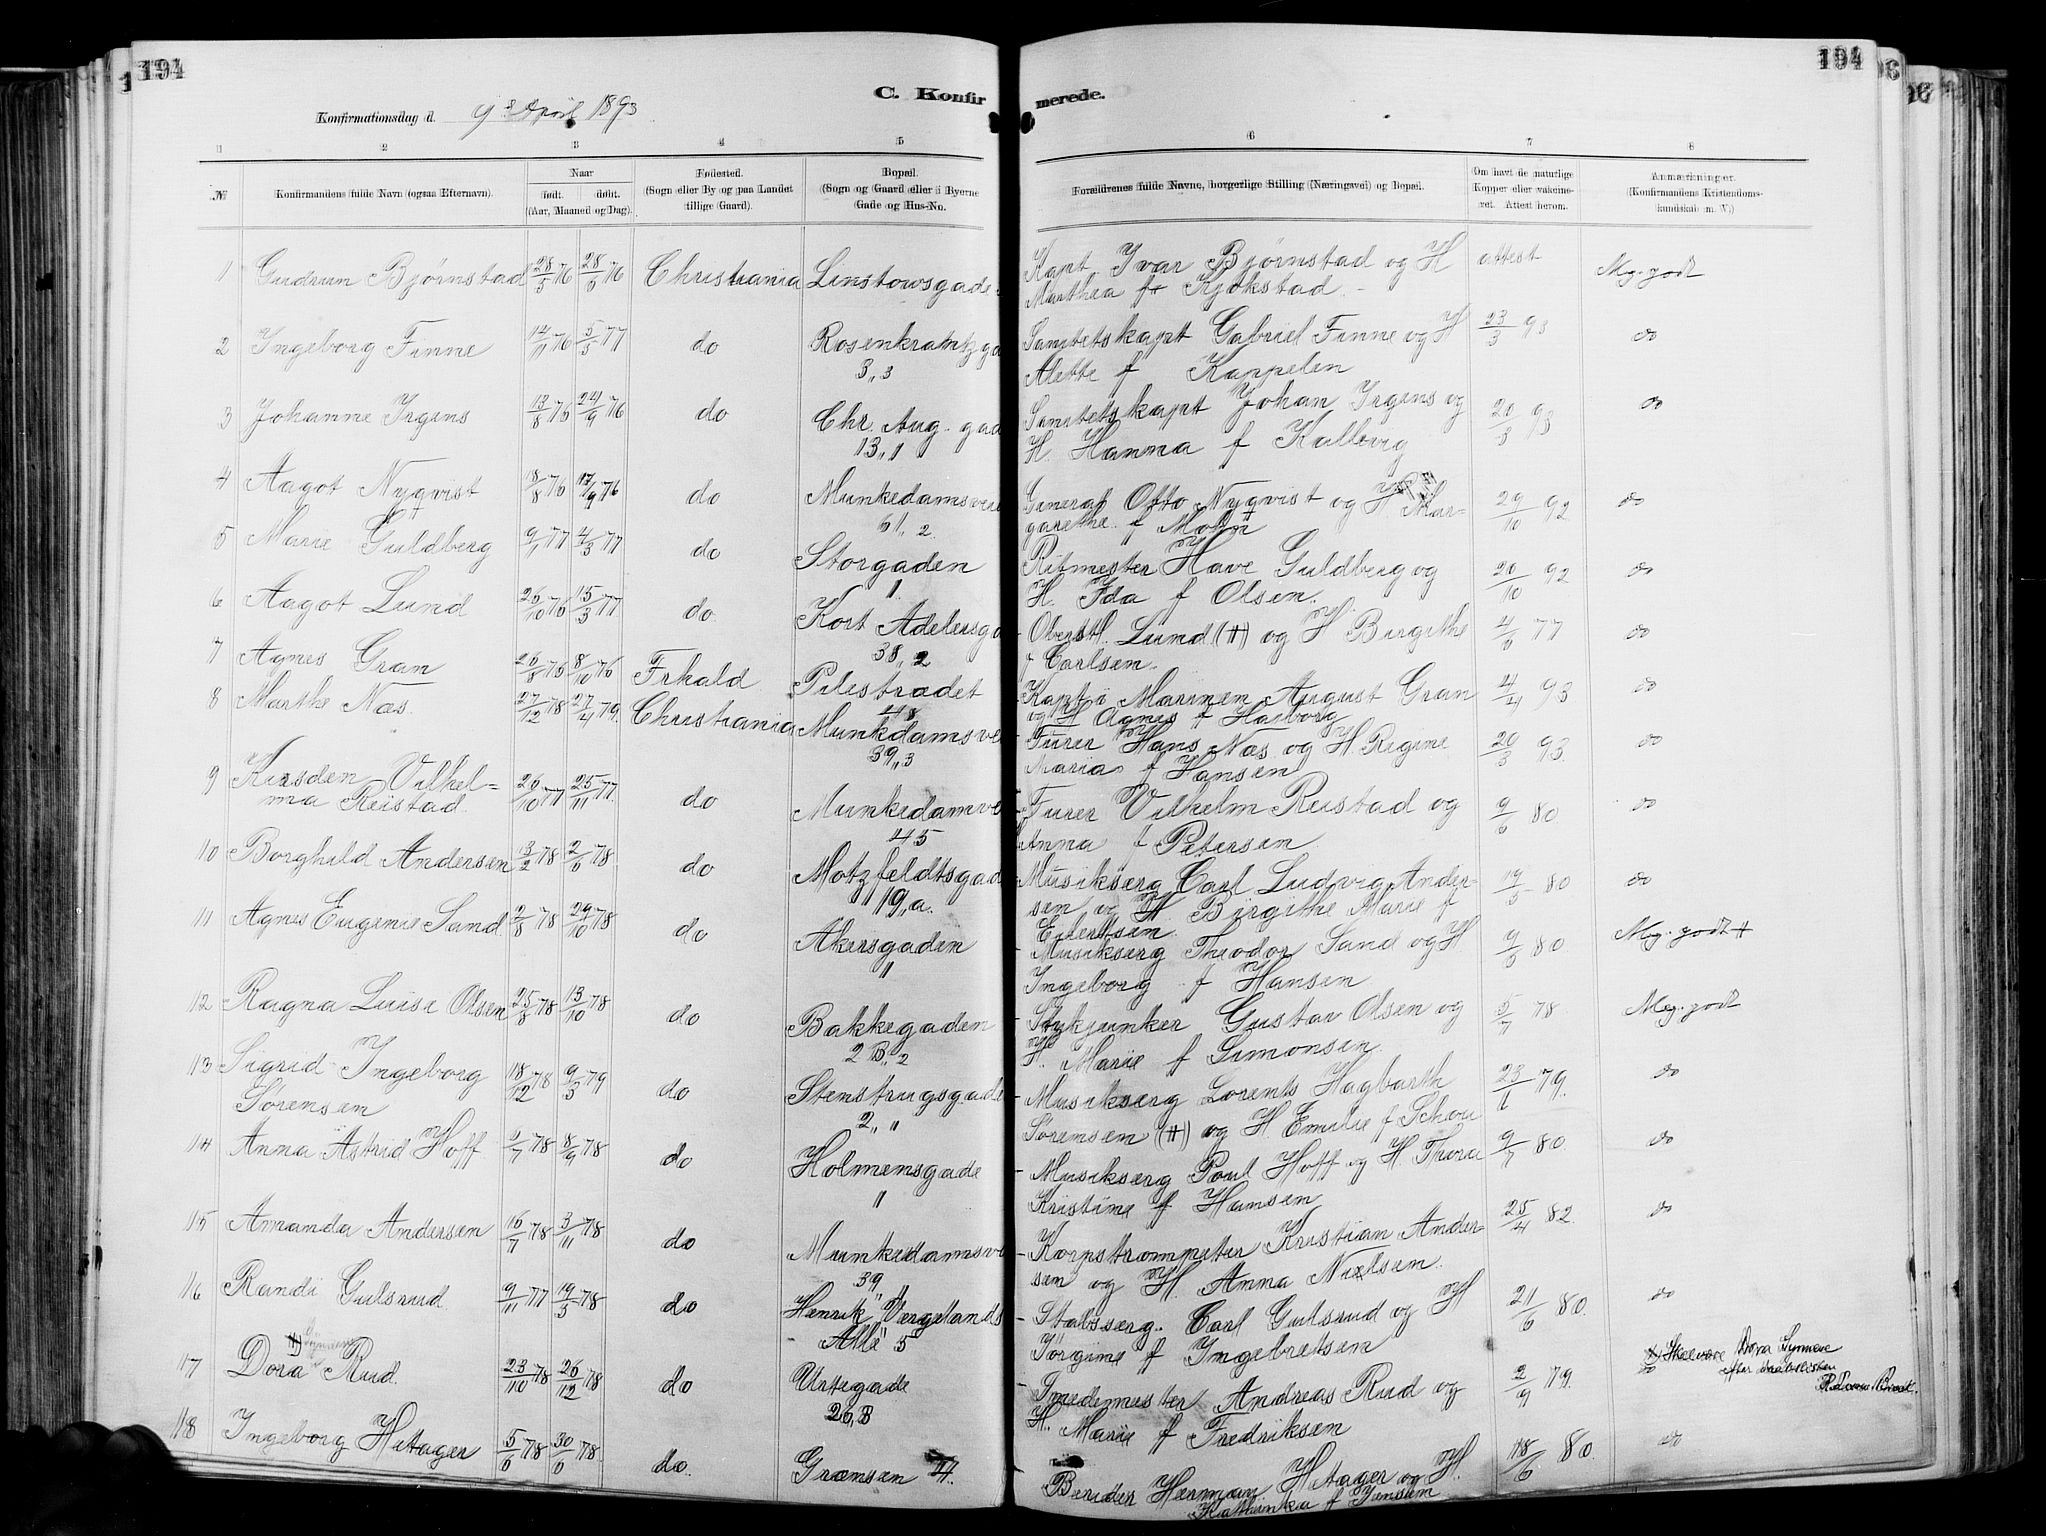 194
194
C. Konfirmerede.
Konfirmationsdag d. 9de April 1893
1 2 3 4 5 6 7 8
№ Konfirmandens fulde Navn (ogsaa Efternavn). Naar født. døbt. (Aar, Maaned og Dag). Fødested. (Sogn eller By og paa Landet tillige Gaard). Bopæl. (Sogn og Gaard eller i Byerne Gade og Hus-No. Forældrenes fulde Navne, borgerlige Stilling (Næringsvei) og Bopæl. Om havt de naturlige Kopper eller vakcineret. Attest herom. Anmærkninger. (Konfirmandens Kristendomskundskab m. V.)
1 Gudrun Bjørnstad 28/5 76 28/6 76 Christiania Linstowsgade Kapt. Ivar Bjørnstad og H attest Mg. godt
Marthea f Kjøkstad.
2 Ingeborg Finne 14/11 76 5/3 77 do Rosenkrantzga Sanitetskapt Gabriel Finne og H 23/3 93 do
3,,3 Alette f Kappelen
3 Johanne Irgens 13/8 76 24/9 76 do Chr. Aug. gad Sanitetskapt Johan Irgens og 20/3 93 do
13,,1 H. Hanna f Kallevig
4 Aagot Nyqvist 18/8 76 17/9 76 do Munkedamsvei General Otto Nyqvist og H. Mar- 29/10 92 do
61,,2. garethe f
5 Marie Guldberg 9/1 77 4/3 77 do Storgaden Ritmester Have Guldberg og 20/10 92 do
1. H. Ida f Olsen.
6 Aagot Lund 26/10 76 15/3 77 do Kort Adelersga Oberstl. Lund (+) og H Birgithe 4/6 77 do
38,,2 f Carlsen.
7 Agnes Gran 26/8 76 8/10 76 Frhald Pilestrædet Kapt i Marinen August Gran 4/4 93 do
48 og H Agnes f
8 Marthe Næs. 27/12 78 27/4 79. Christiania Munkdamsve Furer Hans Næs og H Regine 20/3 93. do
39,,3 Maria f Hansen
9 Kirsden Vilhel- 26/10 77 25/11 77. do Munkedamve Furer Vilhelm Reistad og 9/6 80 do
ma Reistad. 45 Anna f Petersen.
10 Borghild Andersen 13/2 78 2/6 78. do Motzfeldtsgad Musikserg Carl Ludvig Ander- 19/5 80 do
19,,a. sen og H. Birgithe Marie f
Eilertsen.
11 Agnes Eugenie Sand. 2/8 78 29/10 78 do Akersgaden Musikserg Theodor Sand og H 9/6 80 Mg. godt +
" Ingeborg f Hansen
12 Ragna Luise Olsen 25/8 78 13/10 78 do Bakkegaden Stykjunker Gustav Olsen og 5/7 78 Mg. godt
2 B,,2 H. Marie f Simonsen.
13 Sigrid Ingeborg 18/12 78 9/3 79 do Stenstrugsgade Musikserg Lorents Hagbarth 23/1 79. do
Sørensen 2,, " Sørensen (+) og H. Emilie f Schou
14 Anna Astrid Hoff 5/7 78 8/9 78 do Holmensgade Musikserg Poul Hoff og H. Thora 9/7 80. do
" Kristine f Hansen
15 Amanda Andersen 16/7 78 3/11 78 do Munkedamsve Korpstrompeter Kristian Ander- 25/4 82. do
39 " sen og H. Anna Nielsen.
16 Randi Gulsrud 9/11 77 19/5 78 do Henrik Vergelands Stabsserg. Carl Gulsrud og H 21/6 80. do
Allé 5 Jørgine f Ingebretsen
17 Dora +) Rud. 23/10 78 26/12 78 do Urtegade Andreas Rud og 2/9 79. do
26,B H. Marie f Fredriksen
+) Skal være Dora Synnøve
efter
18 Ingeborg Hetager 5/6 78 30/6 78. do. Grænsen 4. Berider Herman Hetager og H. 18/6 80. do
Kathinka f Jensen